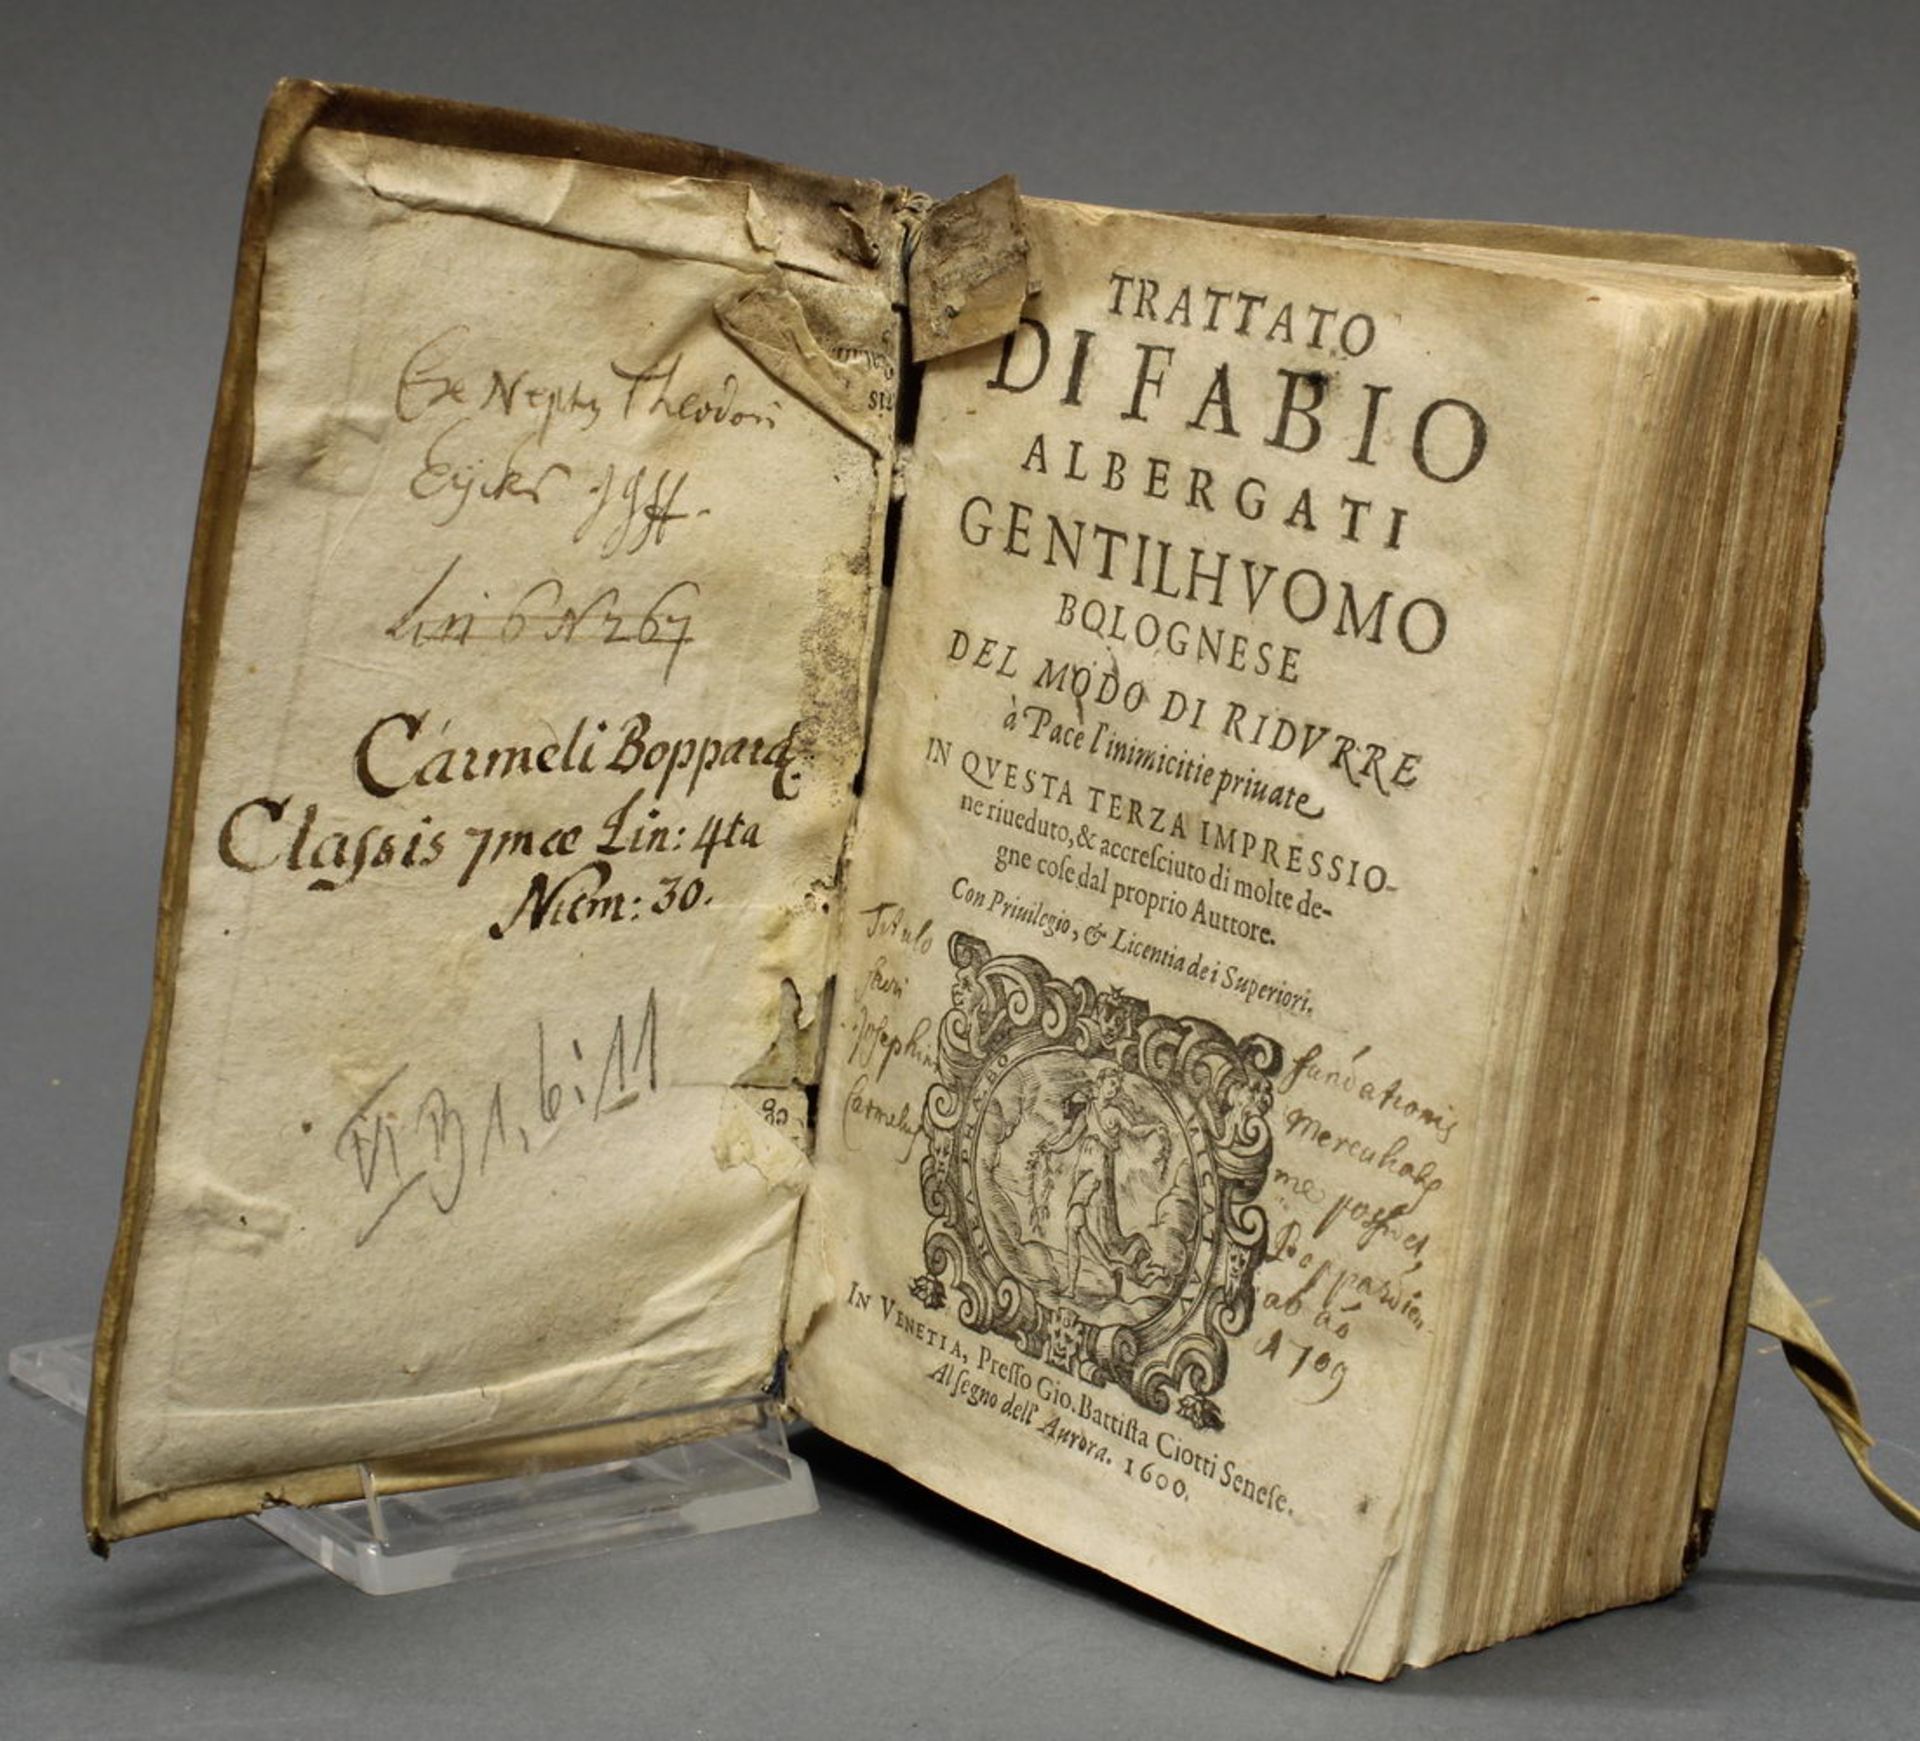 Theodori
Lin 6 N 267
Carmeli Boppard
Classis 7mæ Lin: 4ta
Num: 30.
VI B 1, 6:11
TRATTATO
DI FABIO
ALBERGATI
GENTILHVOMO
BOLOGNESE
DEL MODO DI RIDVRRE
à Pace l'inimicitie priuate
IN QVESTA TERZA IMPRESSIO-
ne riueduto, & accreſciuto di molte de-
gne coſe dal proprio Auttore.
Con Priuilegio, & Licentia de i Superiori.
Titulo
Josephin
fundationis
me
ab aō
1709
IN VENETIA, Preſſo Gio. Battiſta Ciotti Seneſe.
Al ſegno dell' Aurora. 1600.